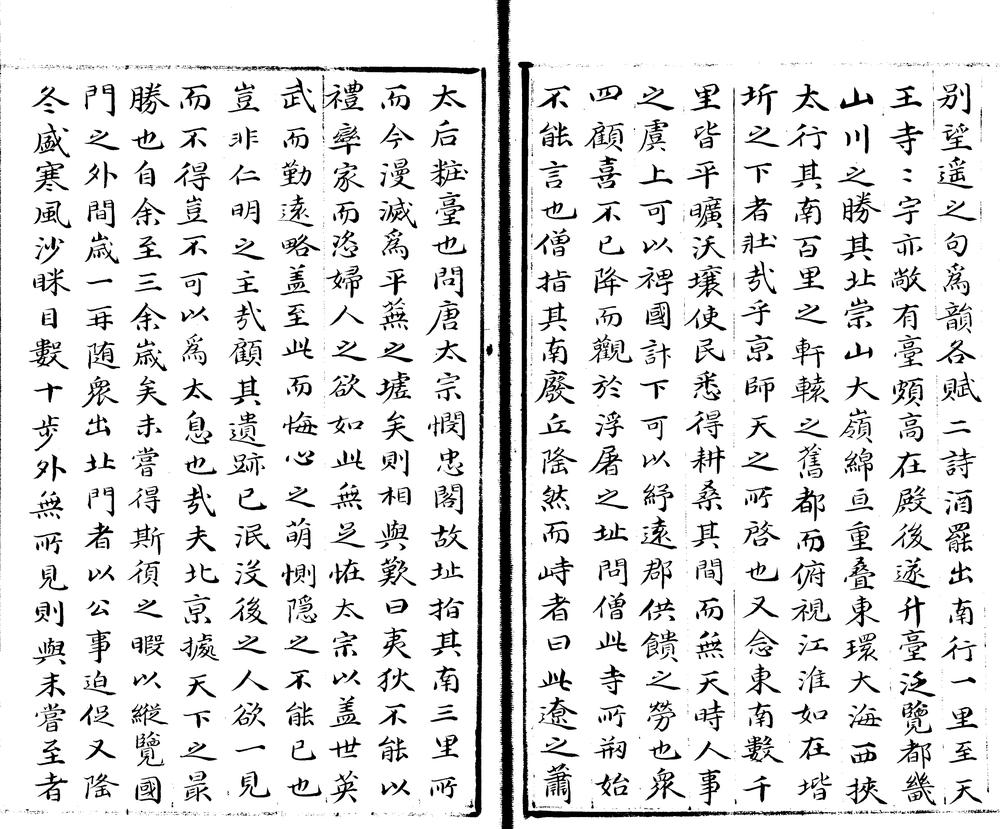 別望遥之句為韻各賦二詩酒罷出南行一里至天
王寺〻宇亦敞有臺頗高在殿後遂升臺泛覽都畿
山川之勝其北崇山大嶺綿亘重疊東環大海西挾
太行其南百里之軒轅之舊都而俯視江淮如在堦
圻之下者壯㢤乎京師天之所啓也又念東南數千
里皆平曠沃壤使民悉得耕桑其間而無天時人事
之虞上可以裨國計下可以紓遠郡供饋之勞也衆
四顧喜不已降而觀於浮屠之址問僧此寺所剏始
不能言也僧指其南廢丘隆然而峙者曰此遼之蕭
太后粧臺也問唐太宗憫忠閣故址指其南三里所
而今漫滅為平蕪之墟矣則相與歎曰夷狄不能以
禮率家而恣婦人之欲如此無足恠太宗以盖世英
武而勤遠略盖至此而悔心之萌惻隐之不能已也
豈非仁明之主㢤顧其遺跡已泯没後之人欲一見
而不得豈不可以為太息也㢤夫北京據天下之最
勝也自余至三余歲矣未嘗得斯須之暇以縱覽國
門之外間歲一再随衆出北門者以公事迫促又隆
冬盛寒風沙眯目數十步外無所見則與未嘗至者